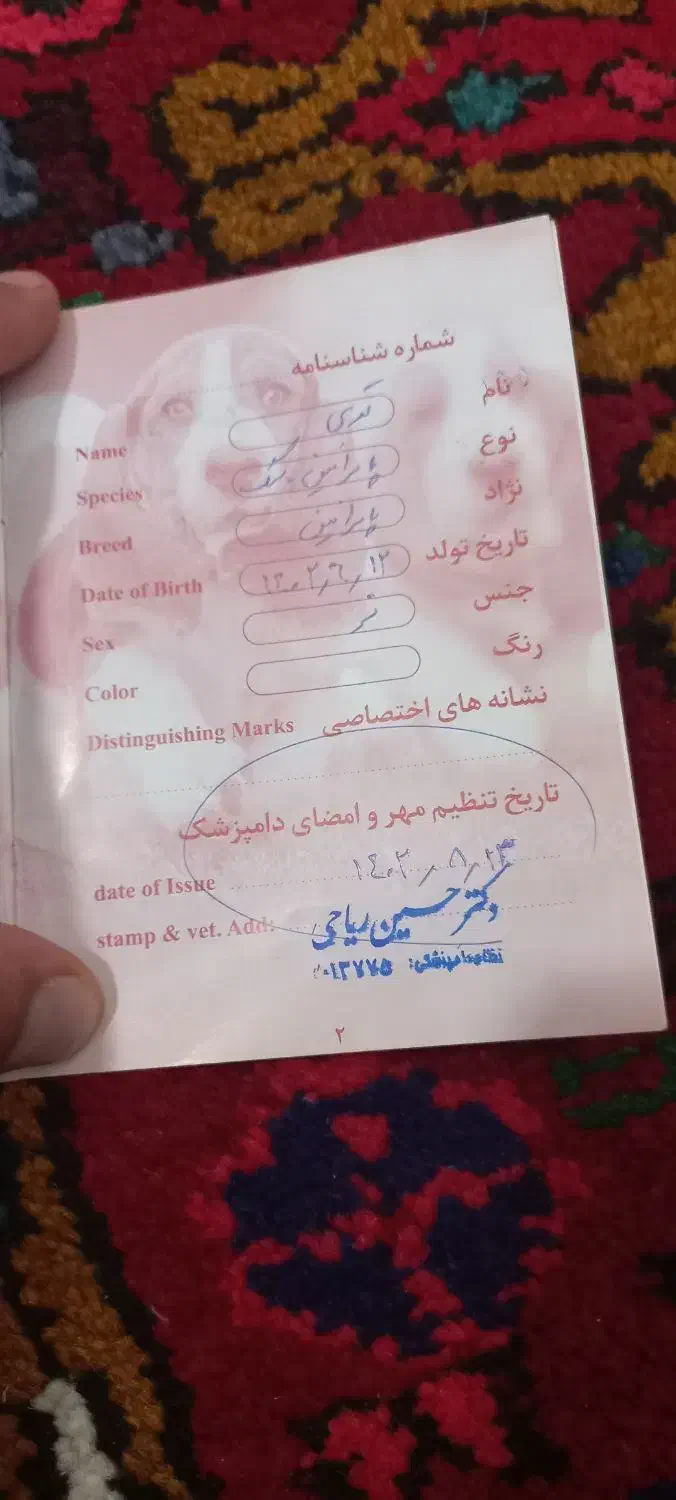 شماره شناسنامه
نام
Name
نوع
Species
نژاد
Breed
تاریخ تولد ۱۴۰۲٫۶٫۱۲
Date of Birth
جنس نر
Sex
رنگ
Color
نشانه های اختصاصی
Distinguishing Marks
تاریخ تنظیم مهر و امضای دامپزشک
date of Issue ۱۴۰۲٫۸٫۲۳
stamp & vet. Add:
دکتر حسین ریاحی
نظام دامپزشکی:
۲